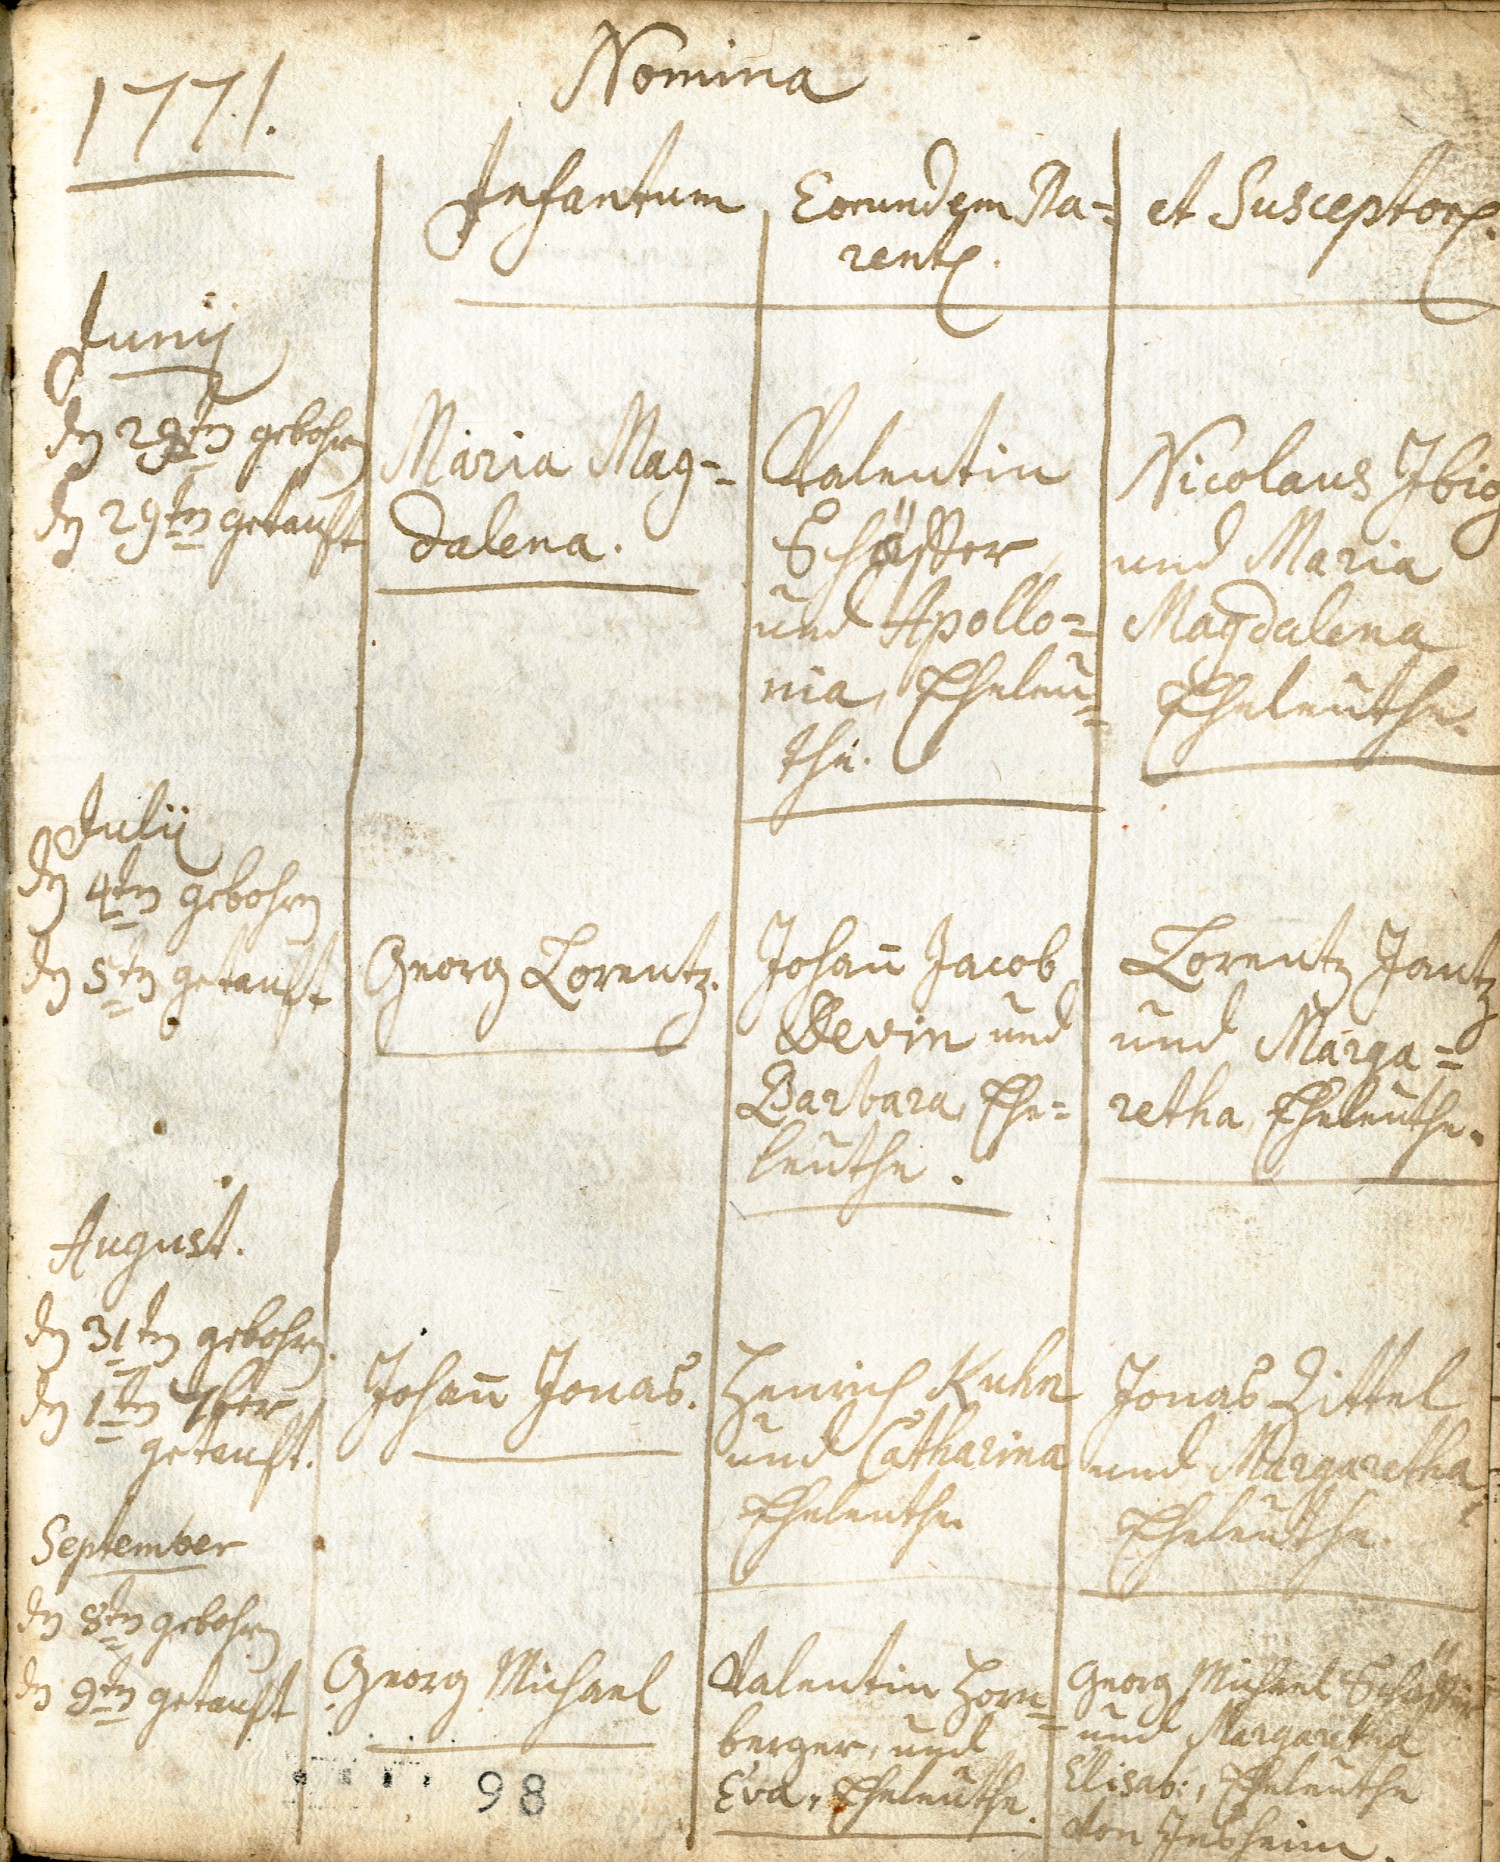 1771.
Nomina
Infantum
Eorundem Pa=
rent.
et Susceptor.
Junij
den 28ten gebohrn
den 29ten getauft
Maria Mag=
dalena.
Valentin
Schäffer
und Apollo=
nia, Eheleu=
the.
Nicolaus Ibig
und Maria
Magdalena
Eheleuthe.
Julij
den 4ten gebohrn
den 5ten getauft
Georg Lorentz.
Johann Jacob
Devin und
Barbara, Ehe=
leuthe.
Lorentz Jantz
und Marga=
retha, Eheleuthe.
August.
den 31ten gebohrn.
den 1ten 7ber
getauft.
Johann Jonas.
Henrich Kuhn
und Catharina
Eheleuthe.
Jonas Zittel
und Margaretha,
Eheleuthe.
September
den 8ten gebohrn
den 9ten getauft
Georg Michael
Valentin Horn=
berger, und
Eva, Eheleuthe.
Georg Michael Schäffer
und Margaretha
Elisab:, Eheleuthe
von Ilbsheim.
98